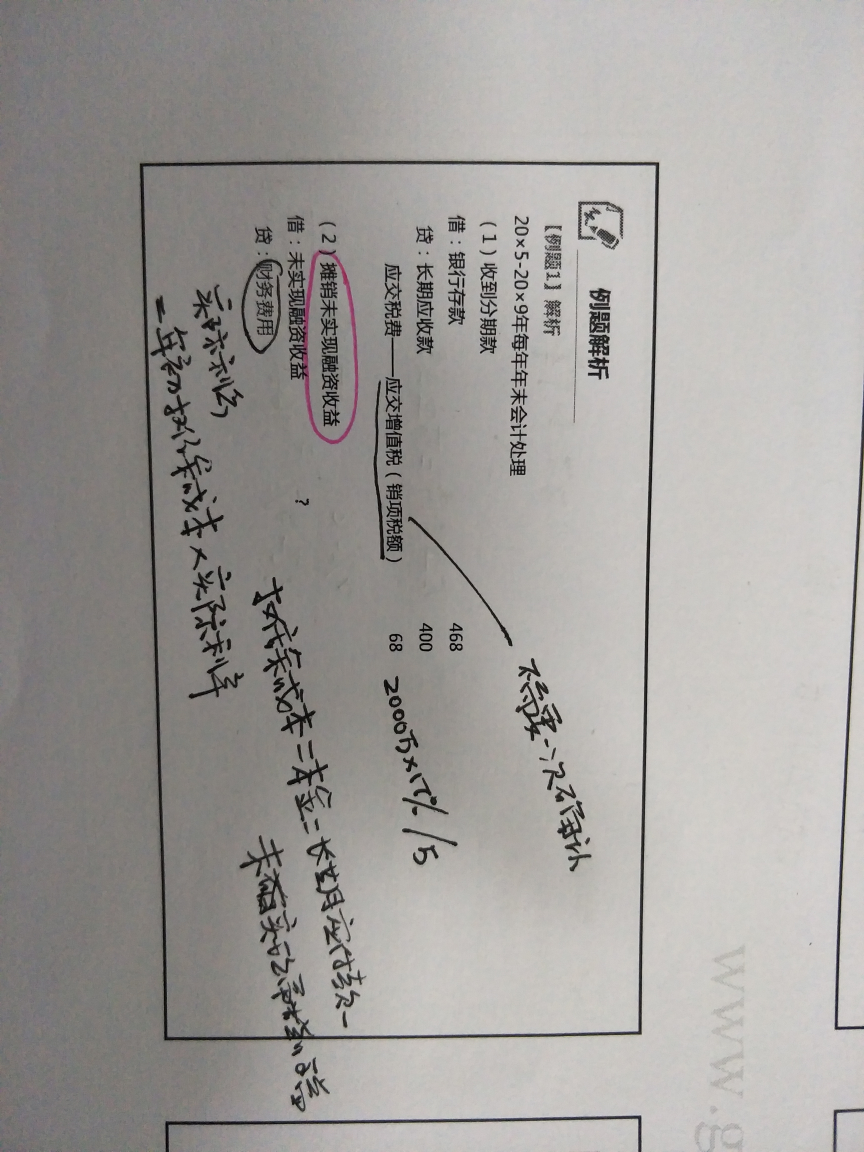 例题解析
【例题1】解析
20×5-20×9年每年年末会计处理
（1）收到分期款
借：银行存款 468
贷：长期应收款 400
应交税费——应交增值税（销项税额） 68 2000万×17%/5
（2）摊销未实现融资收益
借：未实现融资收益
贷：财务费用 ?
不需要一次确认
摊余成本=本金=长期应付款-
未确实的融资收益
实际利息
=年初摊余成本×实际利率
www.g